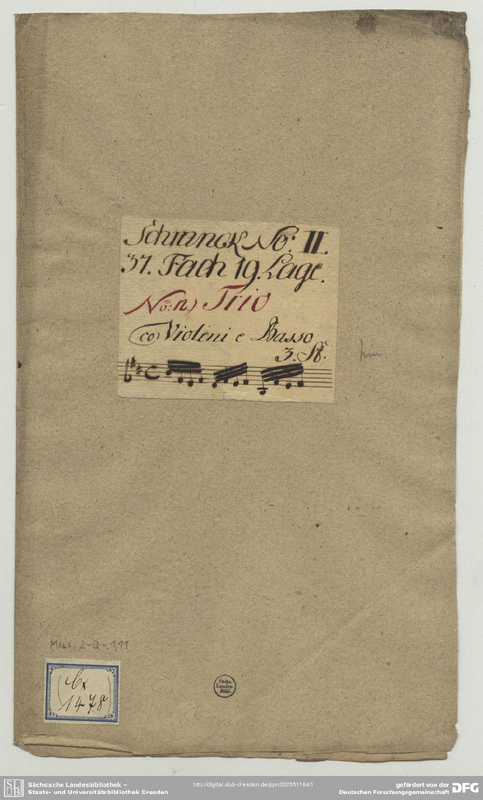 Schranck No: II.
37. Fach 19. Lage.
No: 11.) Trio
co Violini e Basso
3. St.
Mus. 2-Q-1,11
Cx
1478
Sächs.
Landes-
Bibl.
Sächsische Landesbibliothek –
Staats- und Universitätsbibliothek Dresden
http://digital.slub-dresden.de/ppn332551164/1
gefördert von der
Deutschen Forschungsgemeinschaft
DFG